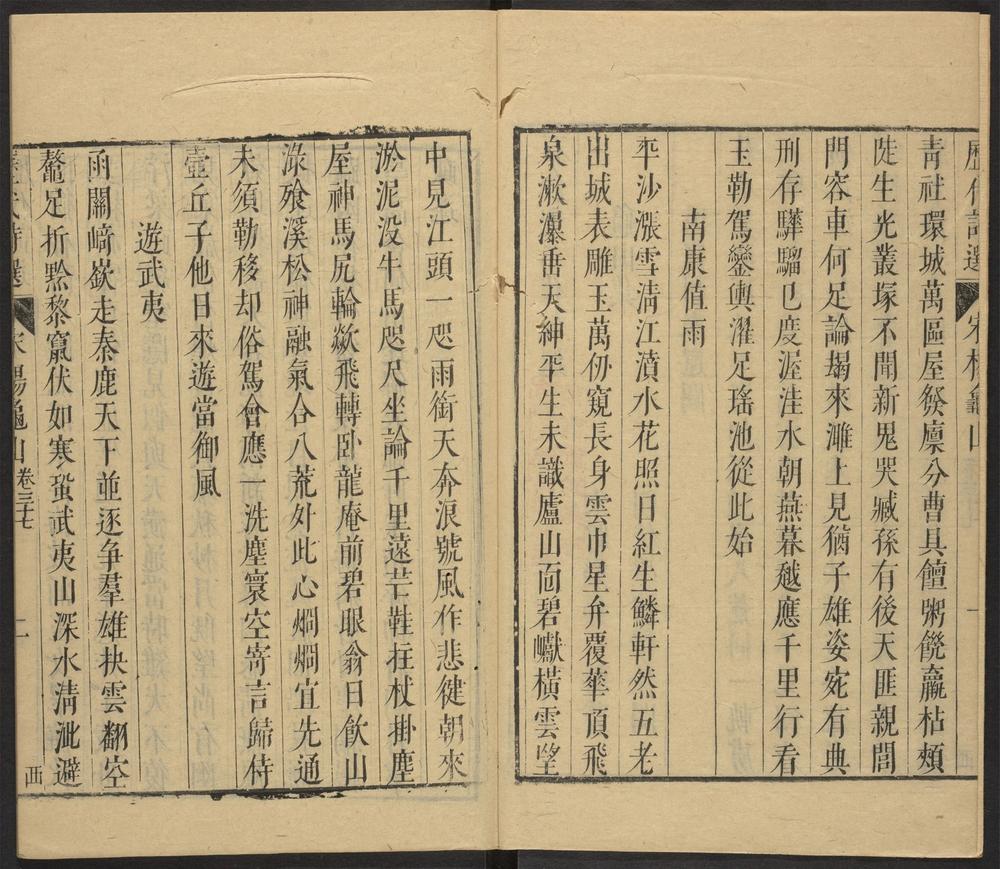 歷代詩選 宋楊龜山 一
青社環城萬區屋發廩分曹具饘粥饒羸枯頰
陡生光叢塚不聞新鬼哭臧孫有後天匪親閭
門容車何足論朅來濉上見猶子雄姿宛有典
刑存驊騮已度渥洼水朝燕暮越應千里行看
玉勒駕鑾輿濯足瑤池從此始
南康值雨
平沙漲雪清江濆水花照日紅生鱗軒然五老
出城表雕玉萬仞窺長身雲巾星弁覆華頂飛
泉漱瀑垂天紳平生未識廬山面碧巘橫雲望
中見江頭一咫雨銜天奔浪號風作悲健朝來
淤泥沒牛馬咫尺坐論千里遠芒鞋拄杖掛塵
屋神馬尻輪歘飛轉臥龍庵前碧眼翁日飲山
淥飱溪松神融氣合八荒外此心烱烱宜先通
未須勒移却俗駕會應一洗塵寰空寄言歸侍
壺丘子他日來遊當御風
遊武夷
函關崎嶔走秦鹿天下並逐爭羣雄抉雲翻空
鼇足折黔黎竄伏如寒蛩武夷山深水清泚避
歷代詩選 宋楊龜山 卷三十七 二 西